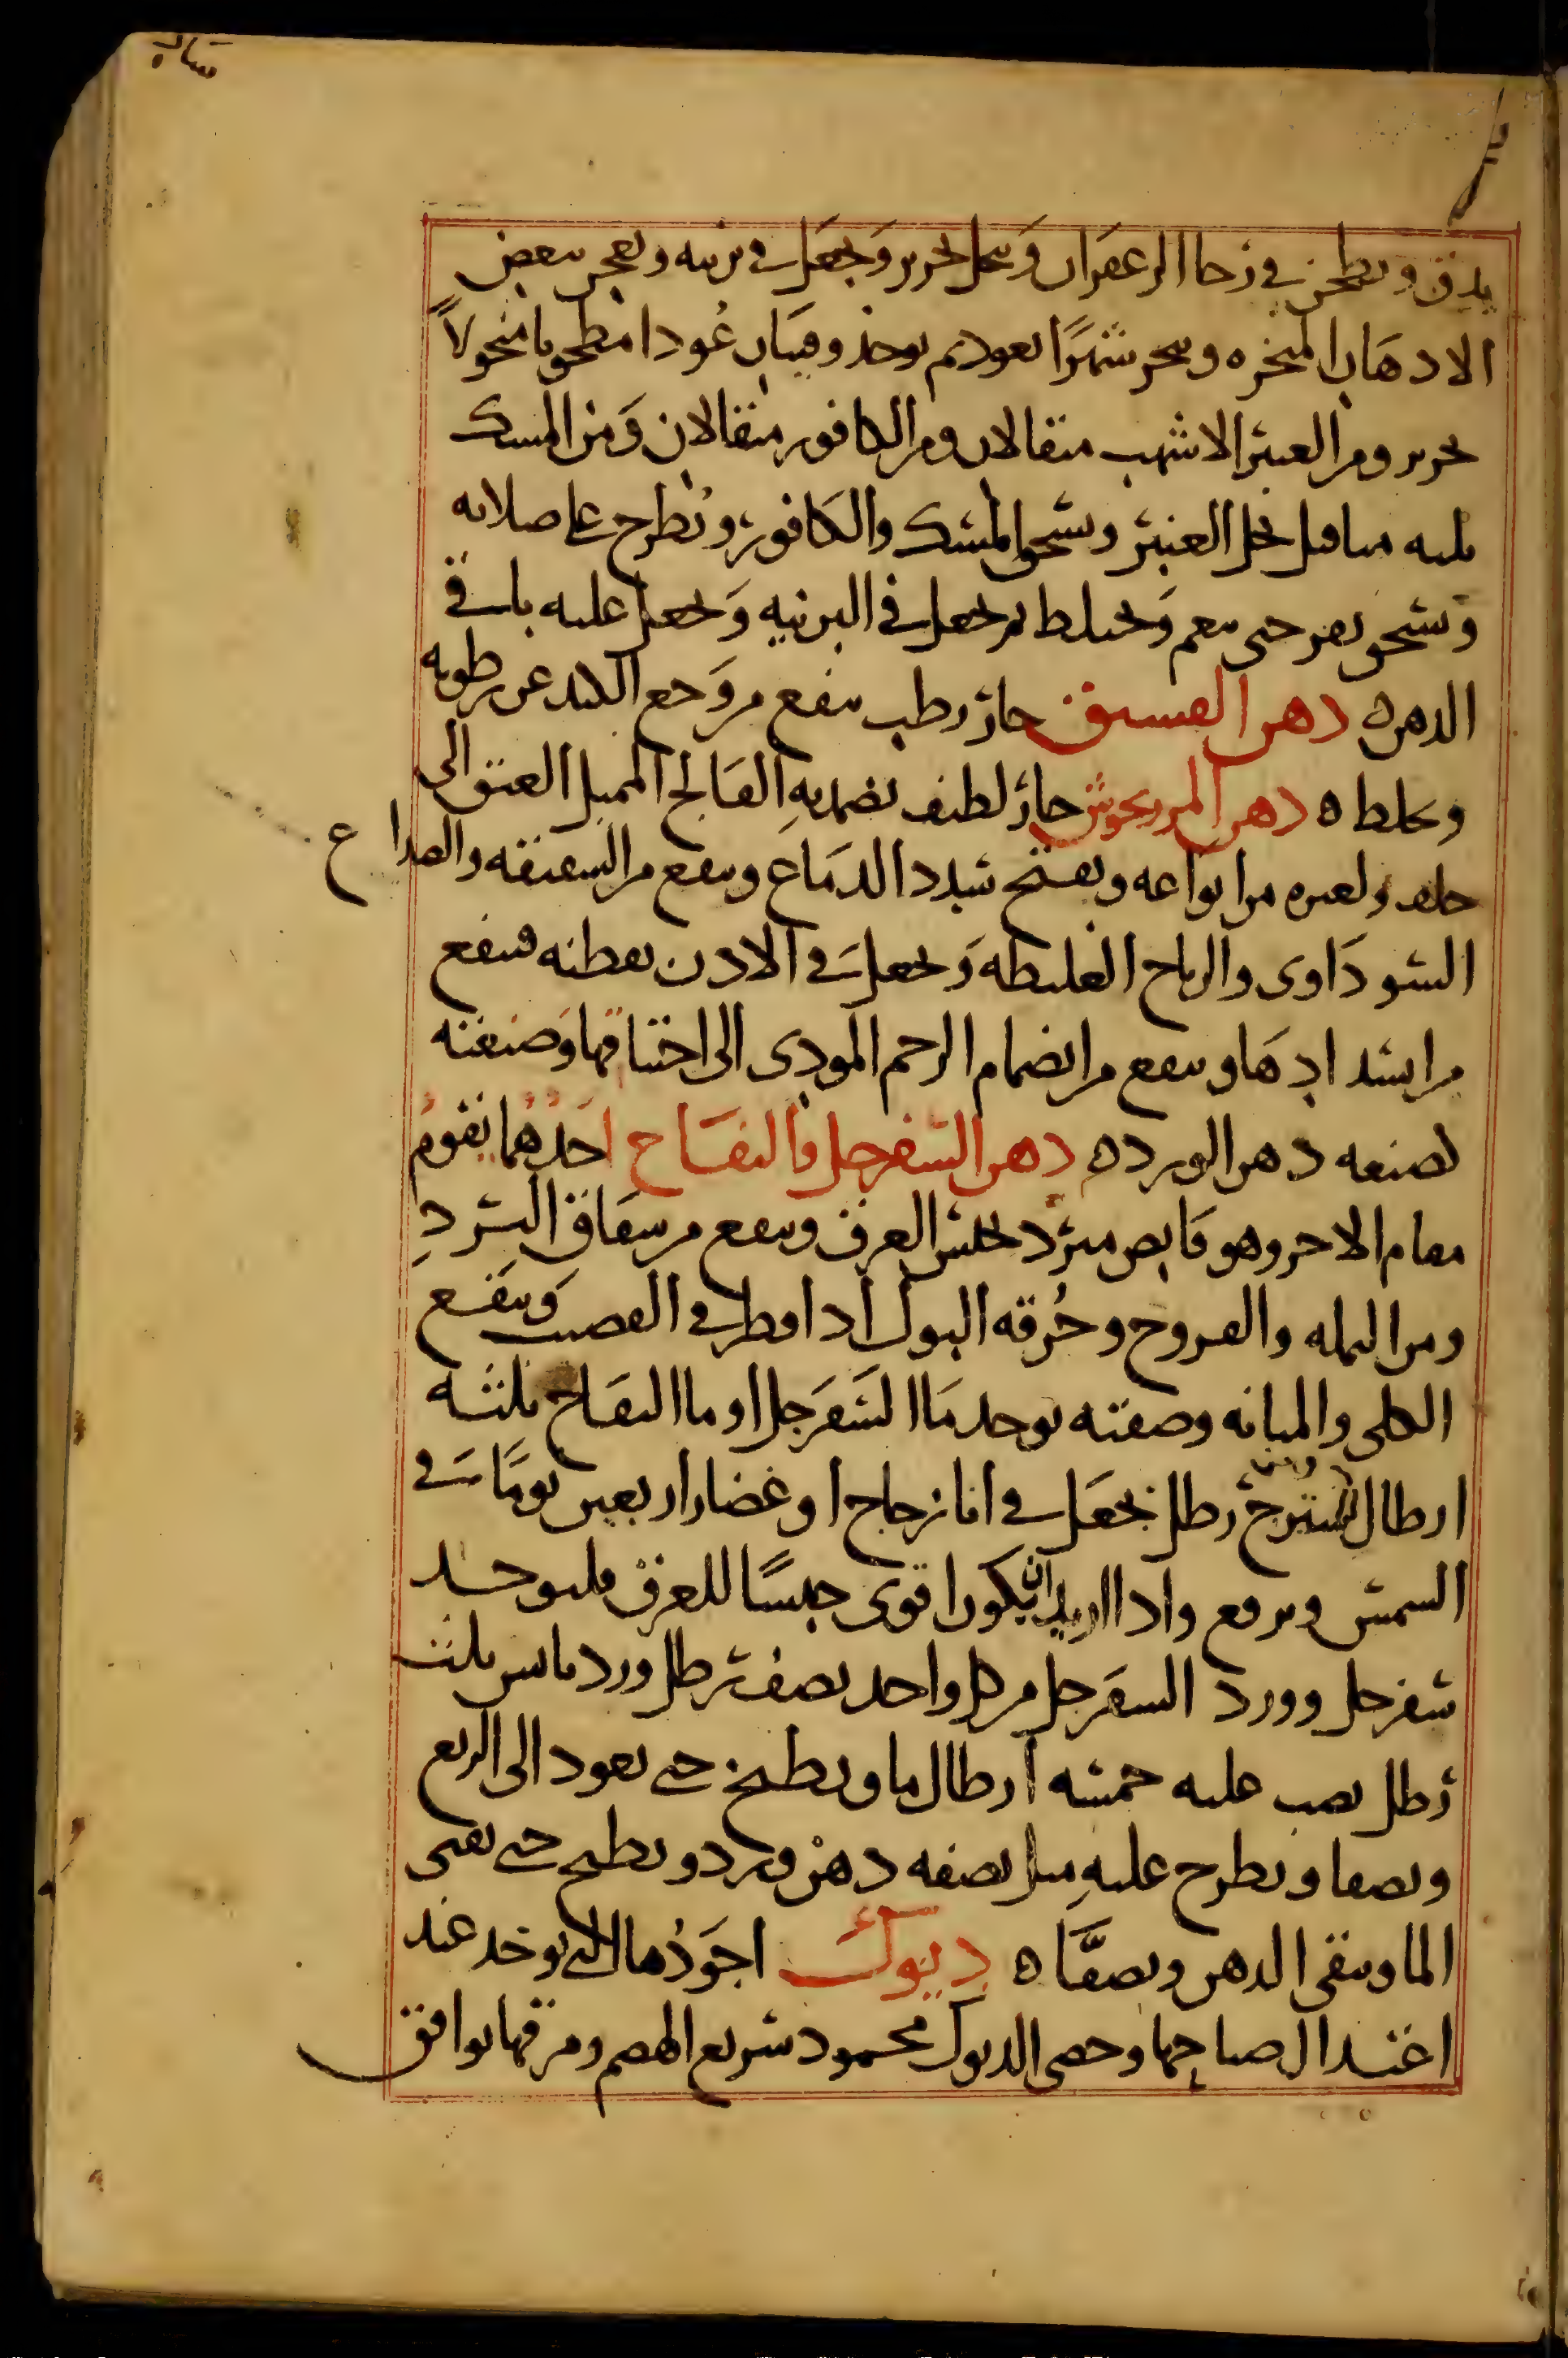 يدق ويطحن في رحا الزعفران وينخل بحرير ويجعل في برنيه ويعجن ببعض
الادهان المبخره ويبخر شهرًا بعود ثم يوخذ وقيتان عُودا مطحونا منخولاً
بحرير ومن العنبر الاشهب مثقالان ومن الكافور مثقالان وَمن المسك
ثلثه مثاقيل يحل العنبر ويسحق المسك والكافور ويُطرح على صلايه
ويسحق بفهر حتى ينعم وَيختلط ثم يجعل في البرنيه وَيجعل عليه باقي
الدهن ه دهن الفستق حار رطب ينفع من وَجع الكبد عن رطوبه
وغلط ه دهن المرزنجوش حار لطيف يضمد به الفالج المميل العنق الى
خلف ولغيره من انواعه ويفتح سدد الدمَاغ وينفع من الشقيقه والصداع
السودَاوى والرياح الغليظه وَيجعل في الاذن بقطنه فينفع
من انسدادهَا وينفع من انضمام الرحم المودى الى اختناقها وَصنعته
كصنعه دهن الورد ه دهن السفرجل والتفاح احَدُهُما يقومُ
مقام الاخر وهو قابض مبرد يحبس العرق وينفع من شقاق البَرد
ومن النمله والقروح وحُرقه البول اذا قطر في القضيب وَينفع
الكلى والمثانه وصفته يوخذ مَا السَفَرجل او ما التفاح ثلثه
ارطال شيرج رطل يجعَل في انا زجاج او غضار اربعين يومًا في
الشمس ويرفع واذا اريد ان يكون اقوى حبسًا للعرق فليوخد
سفرجل وورد السفَرجل من كل واحد نصف رطل ورد يابس ثلث
رطل يصب عليه خمسه أرطال ما ويطبخ حتى يعود الى الربع
ويصفا ويطرح عليهِ مثل نصفه دهن ورد ويطبخ حتى يفنى
الما ويبقى الدهن ويصفَّا ه ديوك اجوَدُها التى يوخد عند
اعتدال صياحها وخصى الديوك محمود سريع الهضم ومرقها يوافق